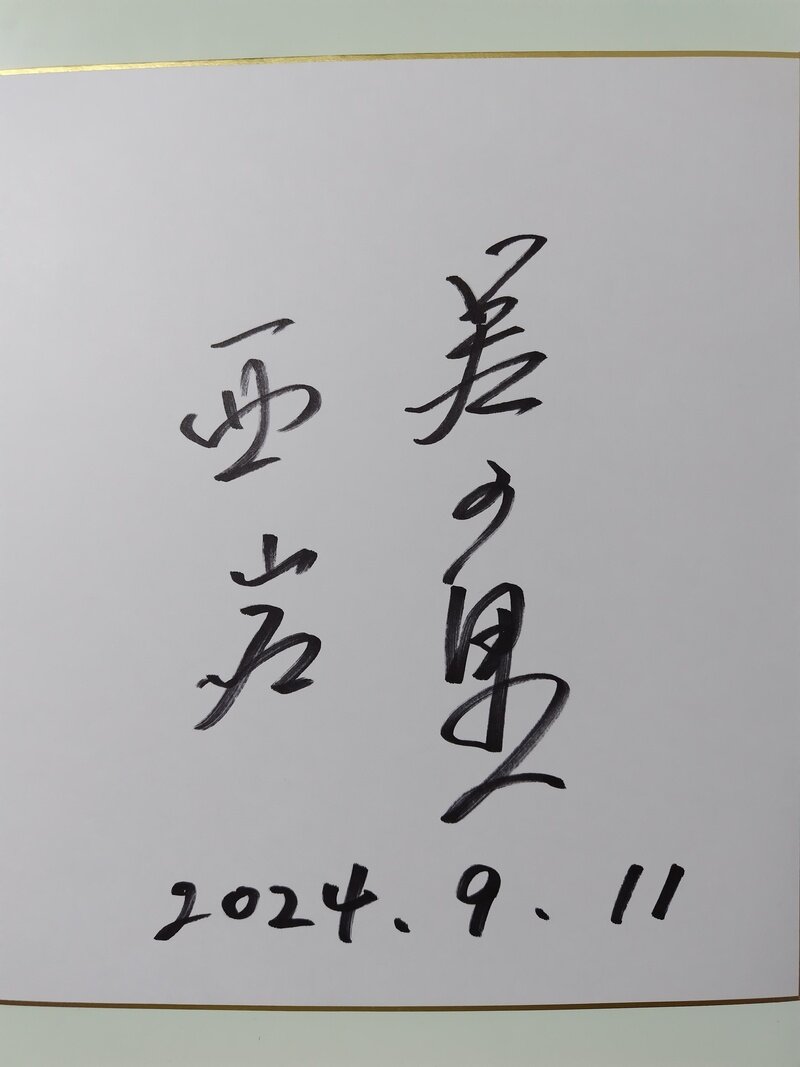 若の里
西岩
2024.9.11